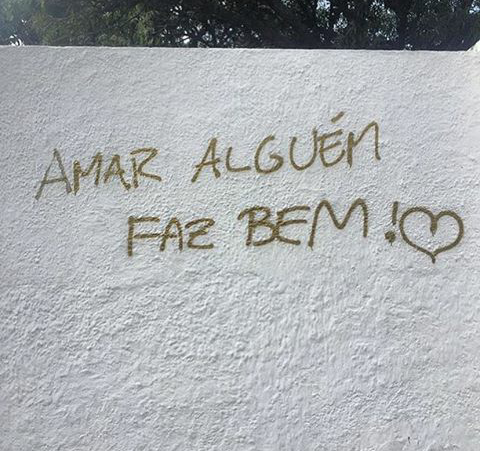 AMAR ALGUÉM
FAZ BEM!♡